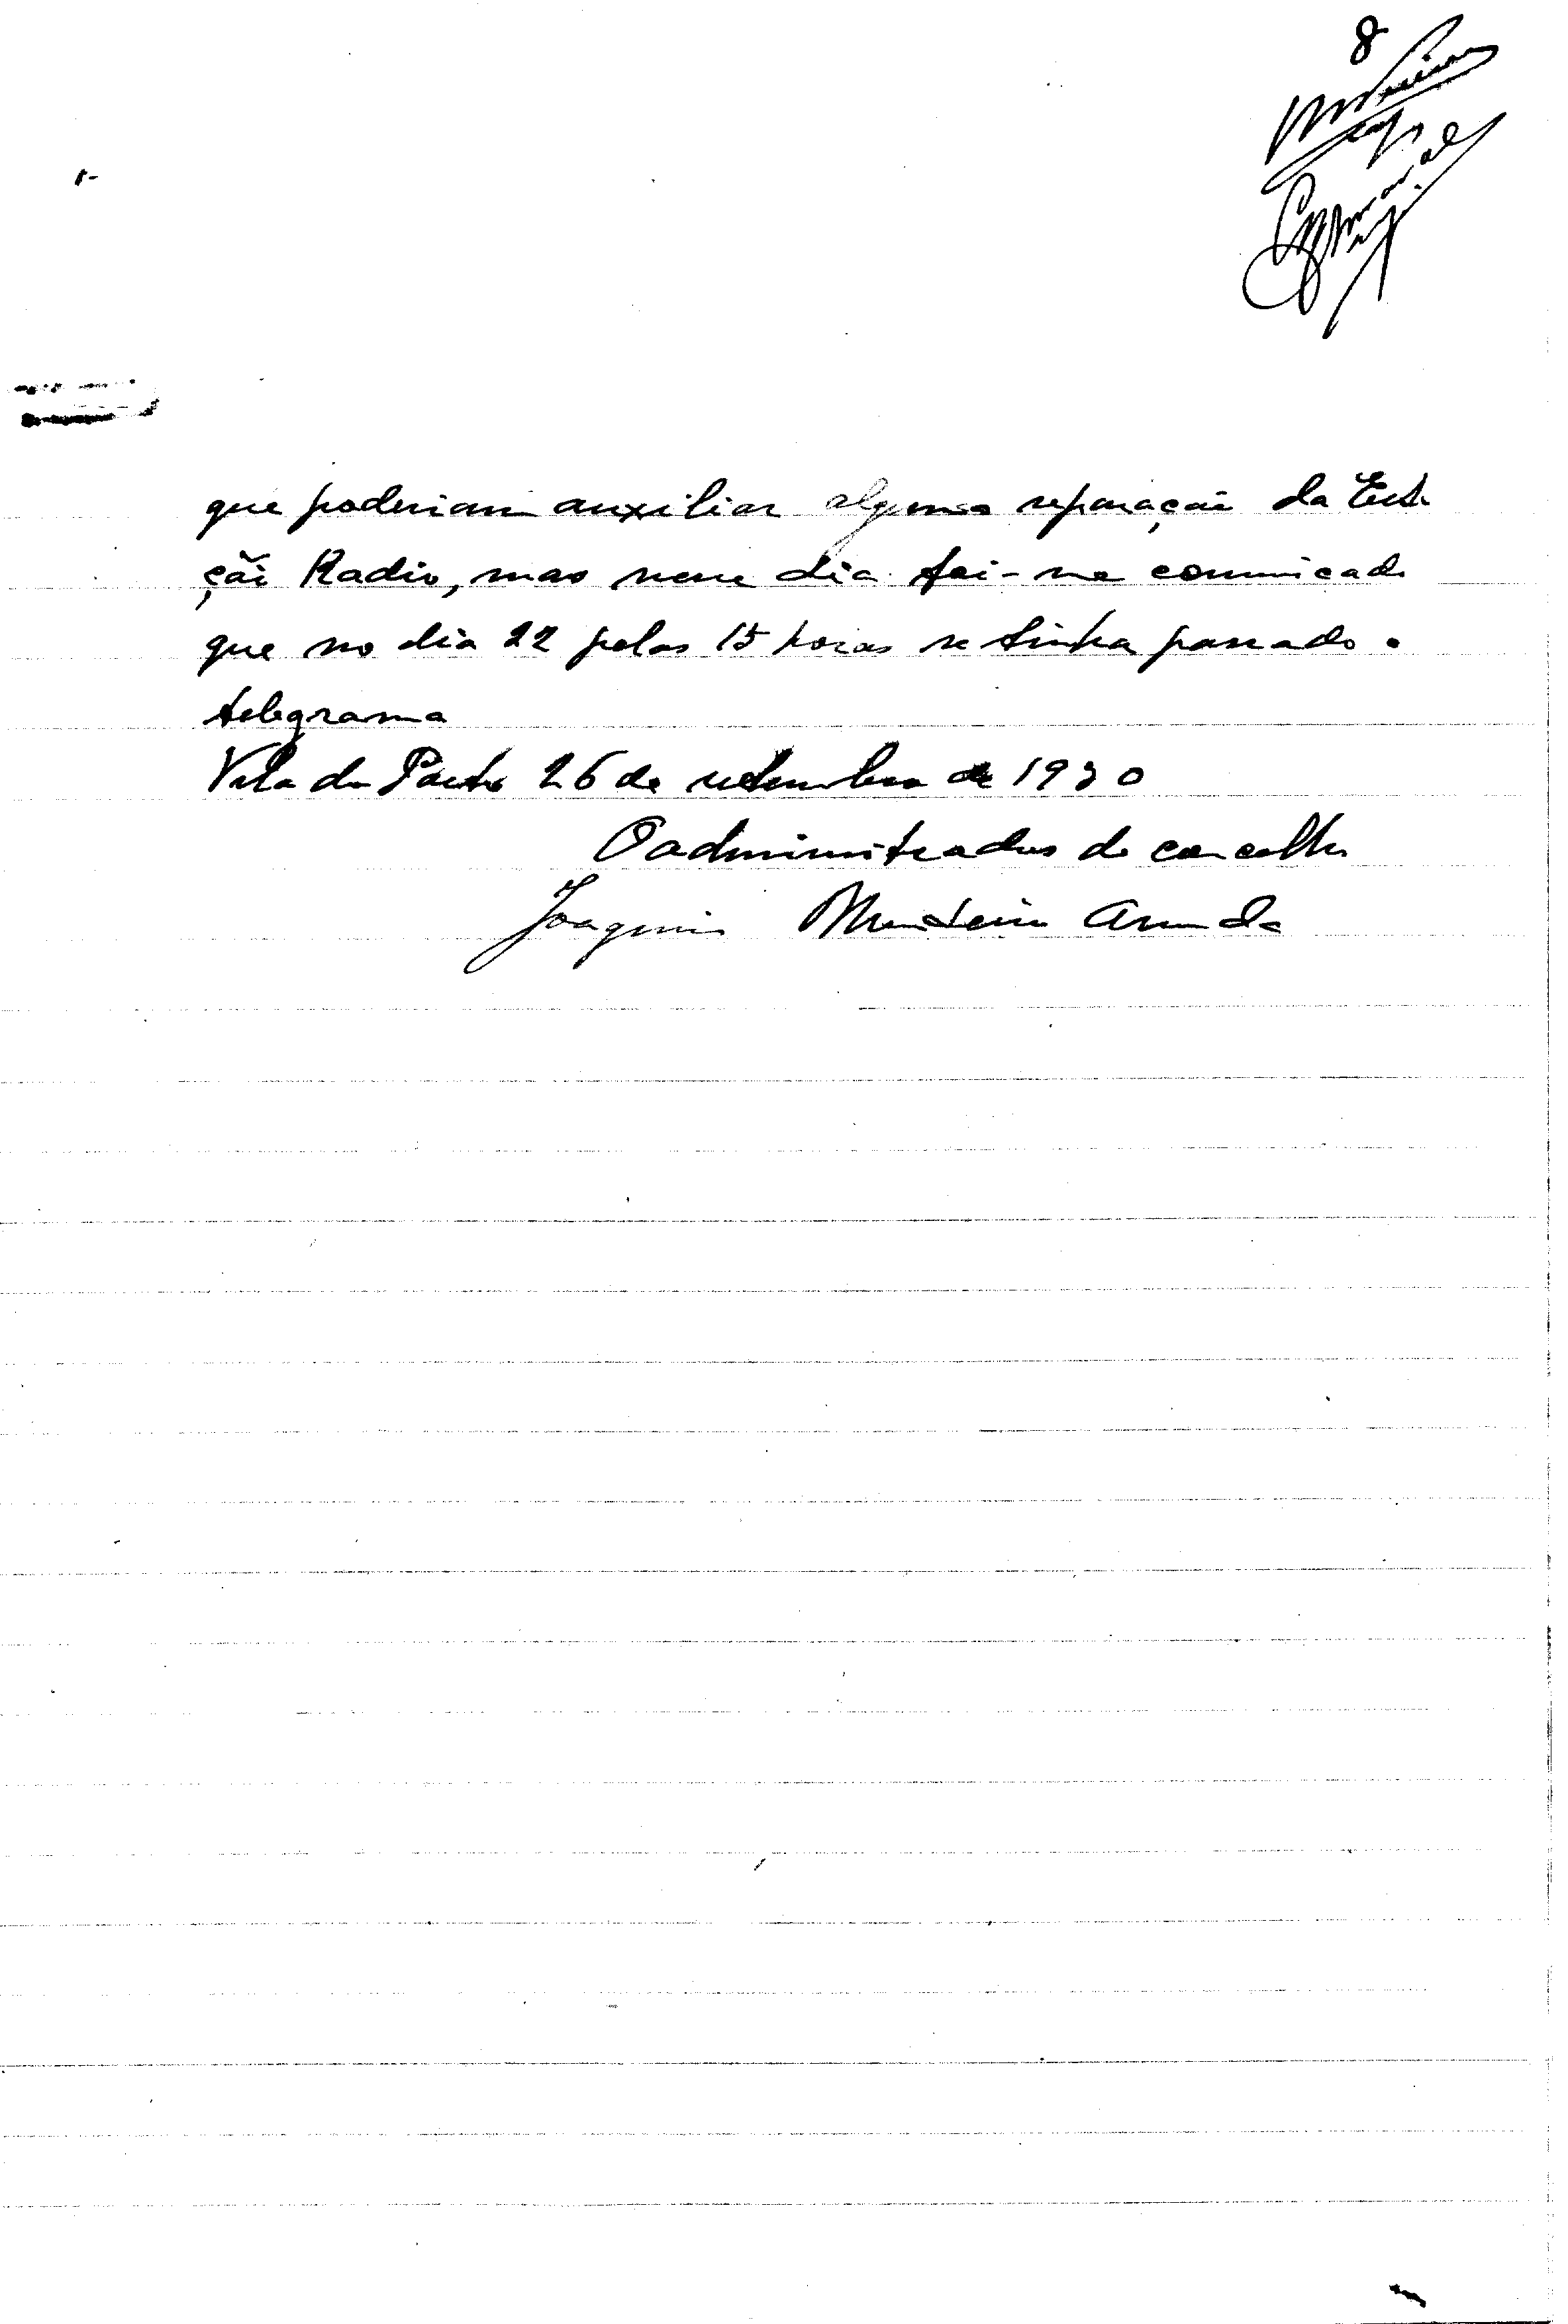 8
que poderiam auxiliar alguma reparação da Esta
ção Radio, mas nesse dia foi-me comunicado
que no dia 22 pelas 15 horas se tinha passado o
telegrama
Vila do Porto 26 de setembro de 1930
O administrador do concelho
Joaquim Monteiro Arruda